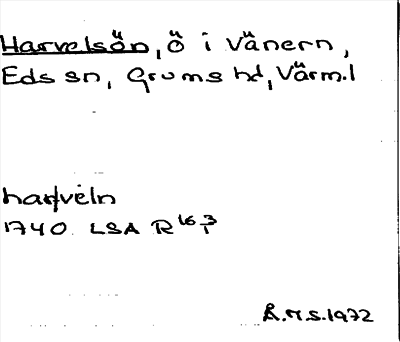 Harvelsön, ö i Vänern,
Eds sn, Grums hd, Värml
harfveln
1740 LSA R16 3/1
R.M.S. 1972